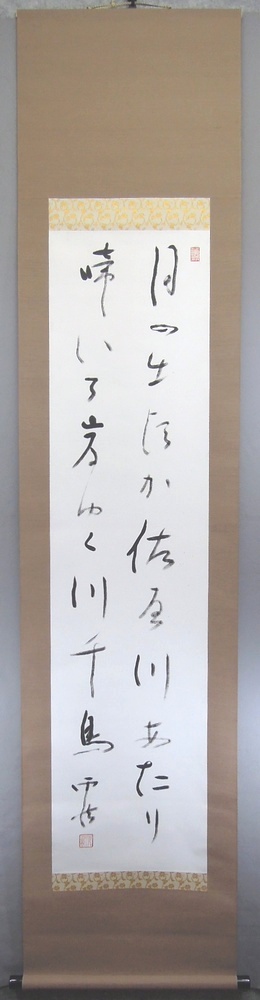 月の出
か佐屋川あたり
啼いる岩ゆく川千鳥